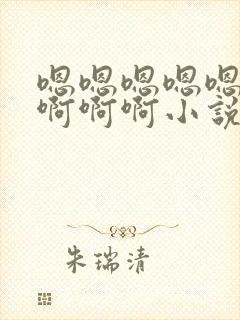 嗯嗯嗯嗯嗯
啊啊啊小説
朱瑞清